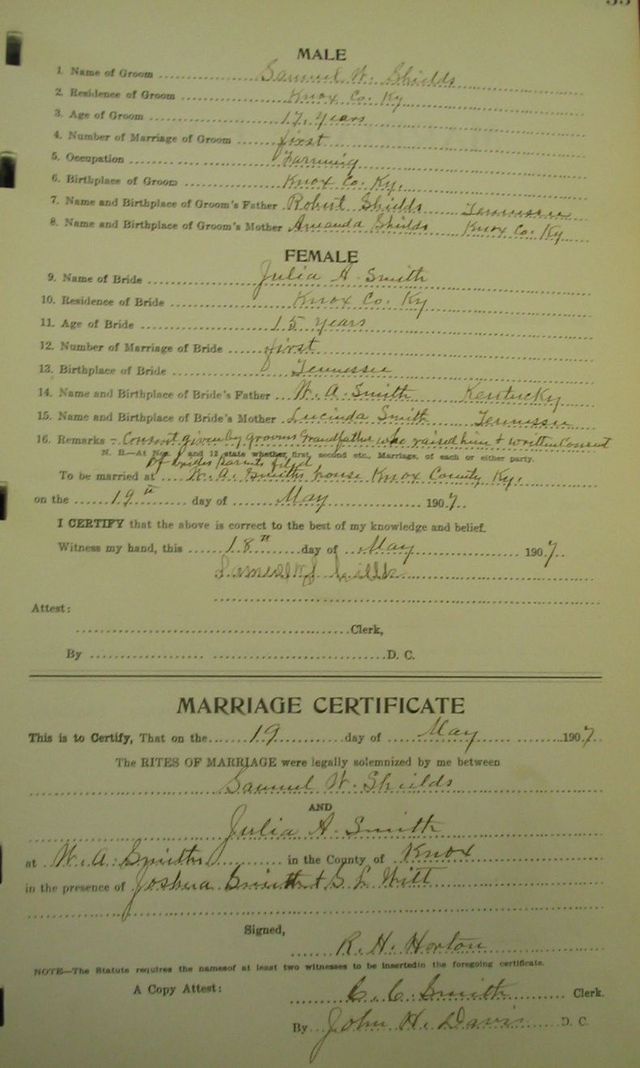 MALE
1. Name of Groom Samuel W. Shields
2. Residence of Groom Knox Co. Ky
3. Age of Groom 17, years
4. Number of Marriage of Groom first
5. Occupation Farming
6. Birthplace of Groom Knox Co. Ky.
7. Name and Birthplace of Groom's Father Robert Shields Tennessee
8. Name and Birthplace of Groom's Mother Amanda Shields Knox Co. Ky
FEMALE
9. Name of Bride Julia A. Smith
10. Residence of Bride Knox Co. Ky
11. Age of Bride 15 years
12. Number of Marriage of Bride first
13. Birthplace of Bride Tennessee
14. Name and Birthplace of Bride's Father W. A. Smith Kentucky
15. Name and Birthplace of Bride's Mother Lucinda Smith Tennessee
16. Remarks - Consent given by grooms Grandfather who raised him & written consent
N. B.—At Nos. and 12 state whether first, second etc., Marriage, of each or either party.
of brides Parents filed
To be married at W. A. Smiths house Knox County Ky.
on the 19th day of May 1907.
I CERTIFY that the above is correct to the best of my knowledge and belief.
Witness my hand, this 18th day of May 1907.
Attest:
Clerk,
By D. C.
MARRIAGE CERTIFICATE
This is to Certify, That on the 19 day of May 1907
The RITES OF MARRIAGE were legally solemnized by me between
Samuel W. Shields
AND
Julia A. Smith
at W. A. Smiths in the County of Knox
in the presence of Joshua Smith & S. L. Witt
Signed,
R. H. Horton
NOTE—The Statute requires the namesof at least two witnesses to be insertedin the foregoing certificate.
A Copy Attest: C. C. Smith Clerk.
By John H. Davis D. C.